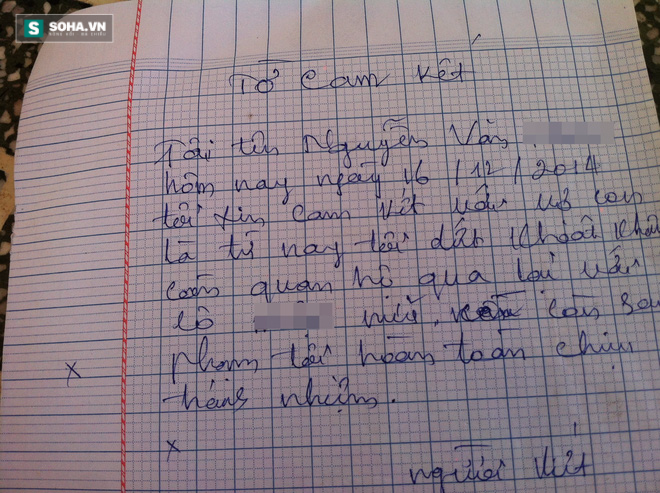 SOHA.VN
Tờ cam kết
Tôi tên Nguyễn Văn
hôm nay ngày 16/12/2014
tôi xin cam kết với vợ con
là từ nay tôi dứt khoát
còn quan hệ qua lại với
cô nữa. còn
phạm tôi hoàn toàn chịu
nhiệm.
người viết